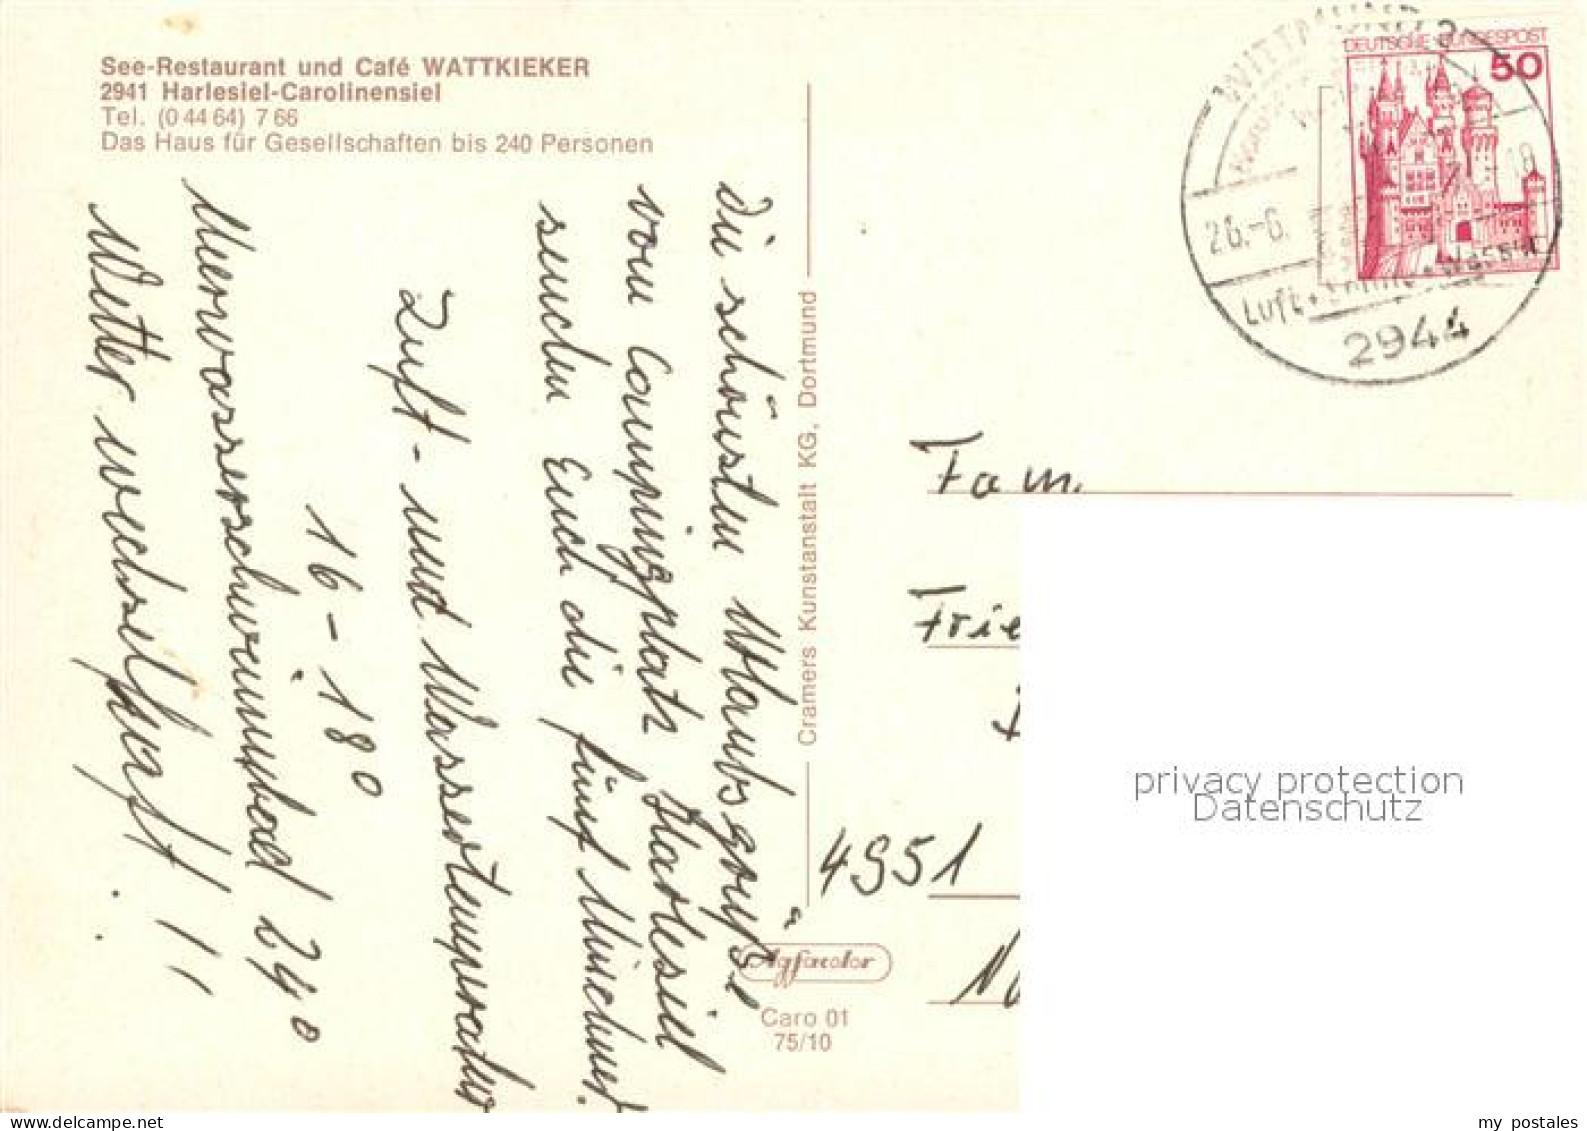 See-Restaurant und Café WATTKIEKER
2941 Harlesiel-Carolinensiel
Tel. (0 44 64) 7 66
Das Haus für Gesellschaften bis 240 Personen
Die schönsten Urlaubsgrüße
vom Campingplatz Harlesiel
senden Euch die fünf Münchner.
Luft- und Wassertemperatur
16 - 18°
Meerwasserschwimmbad 24°
Wetter wechselhaft !!
Cramers Kunstanstalt KG, Dortmund
Agfacolor
Caro 01
75/10
WITTMUND 2
DEUTSCHE BUNDESPOST
50
26.-6.
18
Luft +
+ Wasser
2944
Fam.
Frie
4951
privacy protection
Datenschutz
www.delcampe.net
my_postales